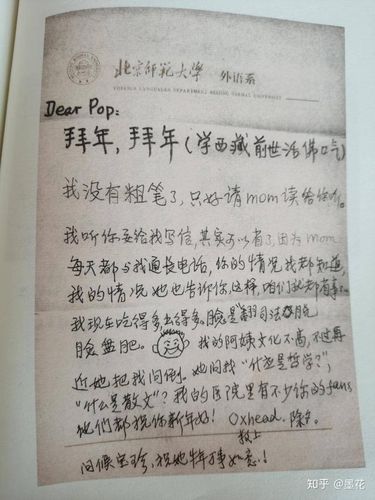 北京师范大学 外语系
FOREIGN LANGUAGES DEPARTMENT BEIJING NORMAL UNIVERSITY
Dear Pop:
拜年，拜年(学西藏前世活佛口气)
我没有粗笔了，只好请mom读给你听。
我听你要给我写信，其实可以省了，因为mom
每天都与我通长电话，你的情况我都知道，
我的情况她也告诉你，这样，咱们就都有事
我现在吃得多去得多，脸是翻司法脱
脸盘肥。 我的阿姨文化不高，不过再
近她把我问倒。她问我“什么是哲学？”，
“什么是散文”？我的医院里有不少你的fans
他们都祝你新年好！ Oxhead. 除夕。
敬上
问候宝玲，祝她牛事如意！
知乎 @墨花